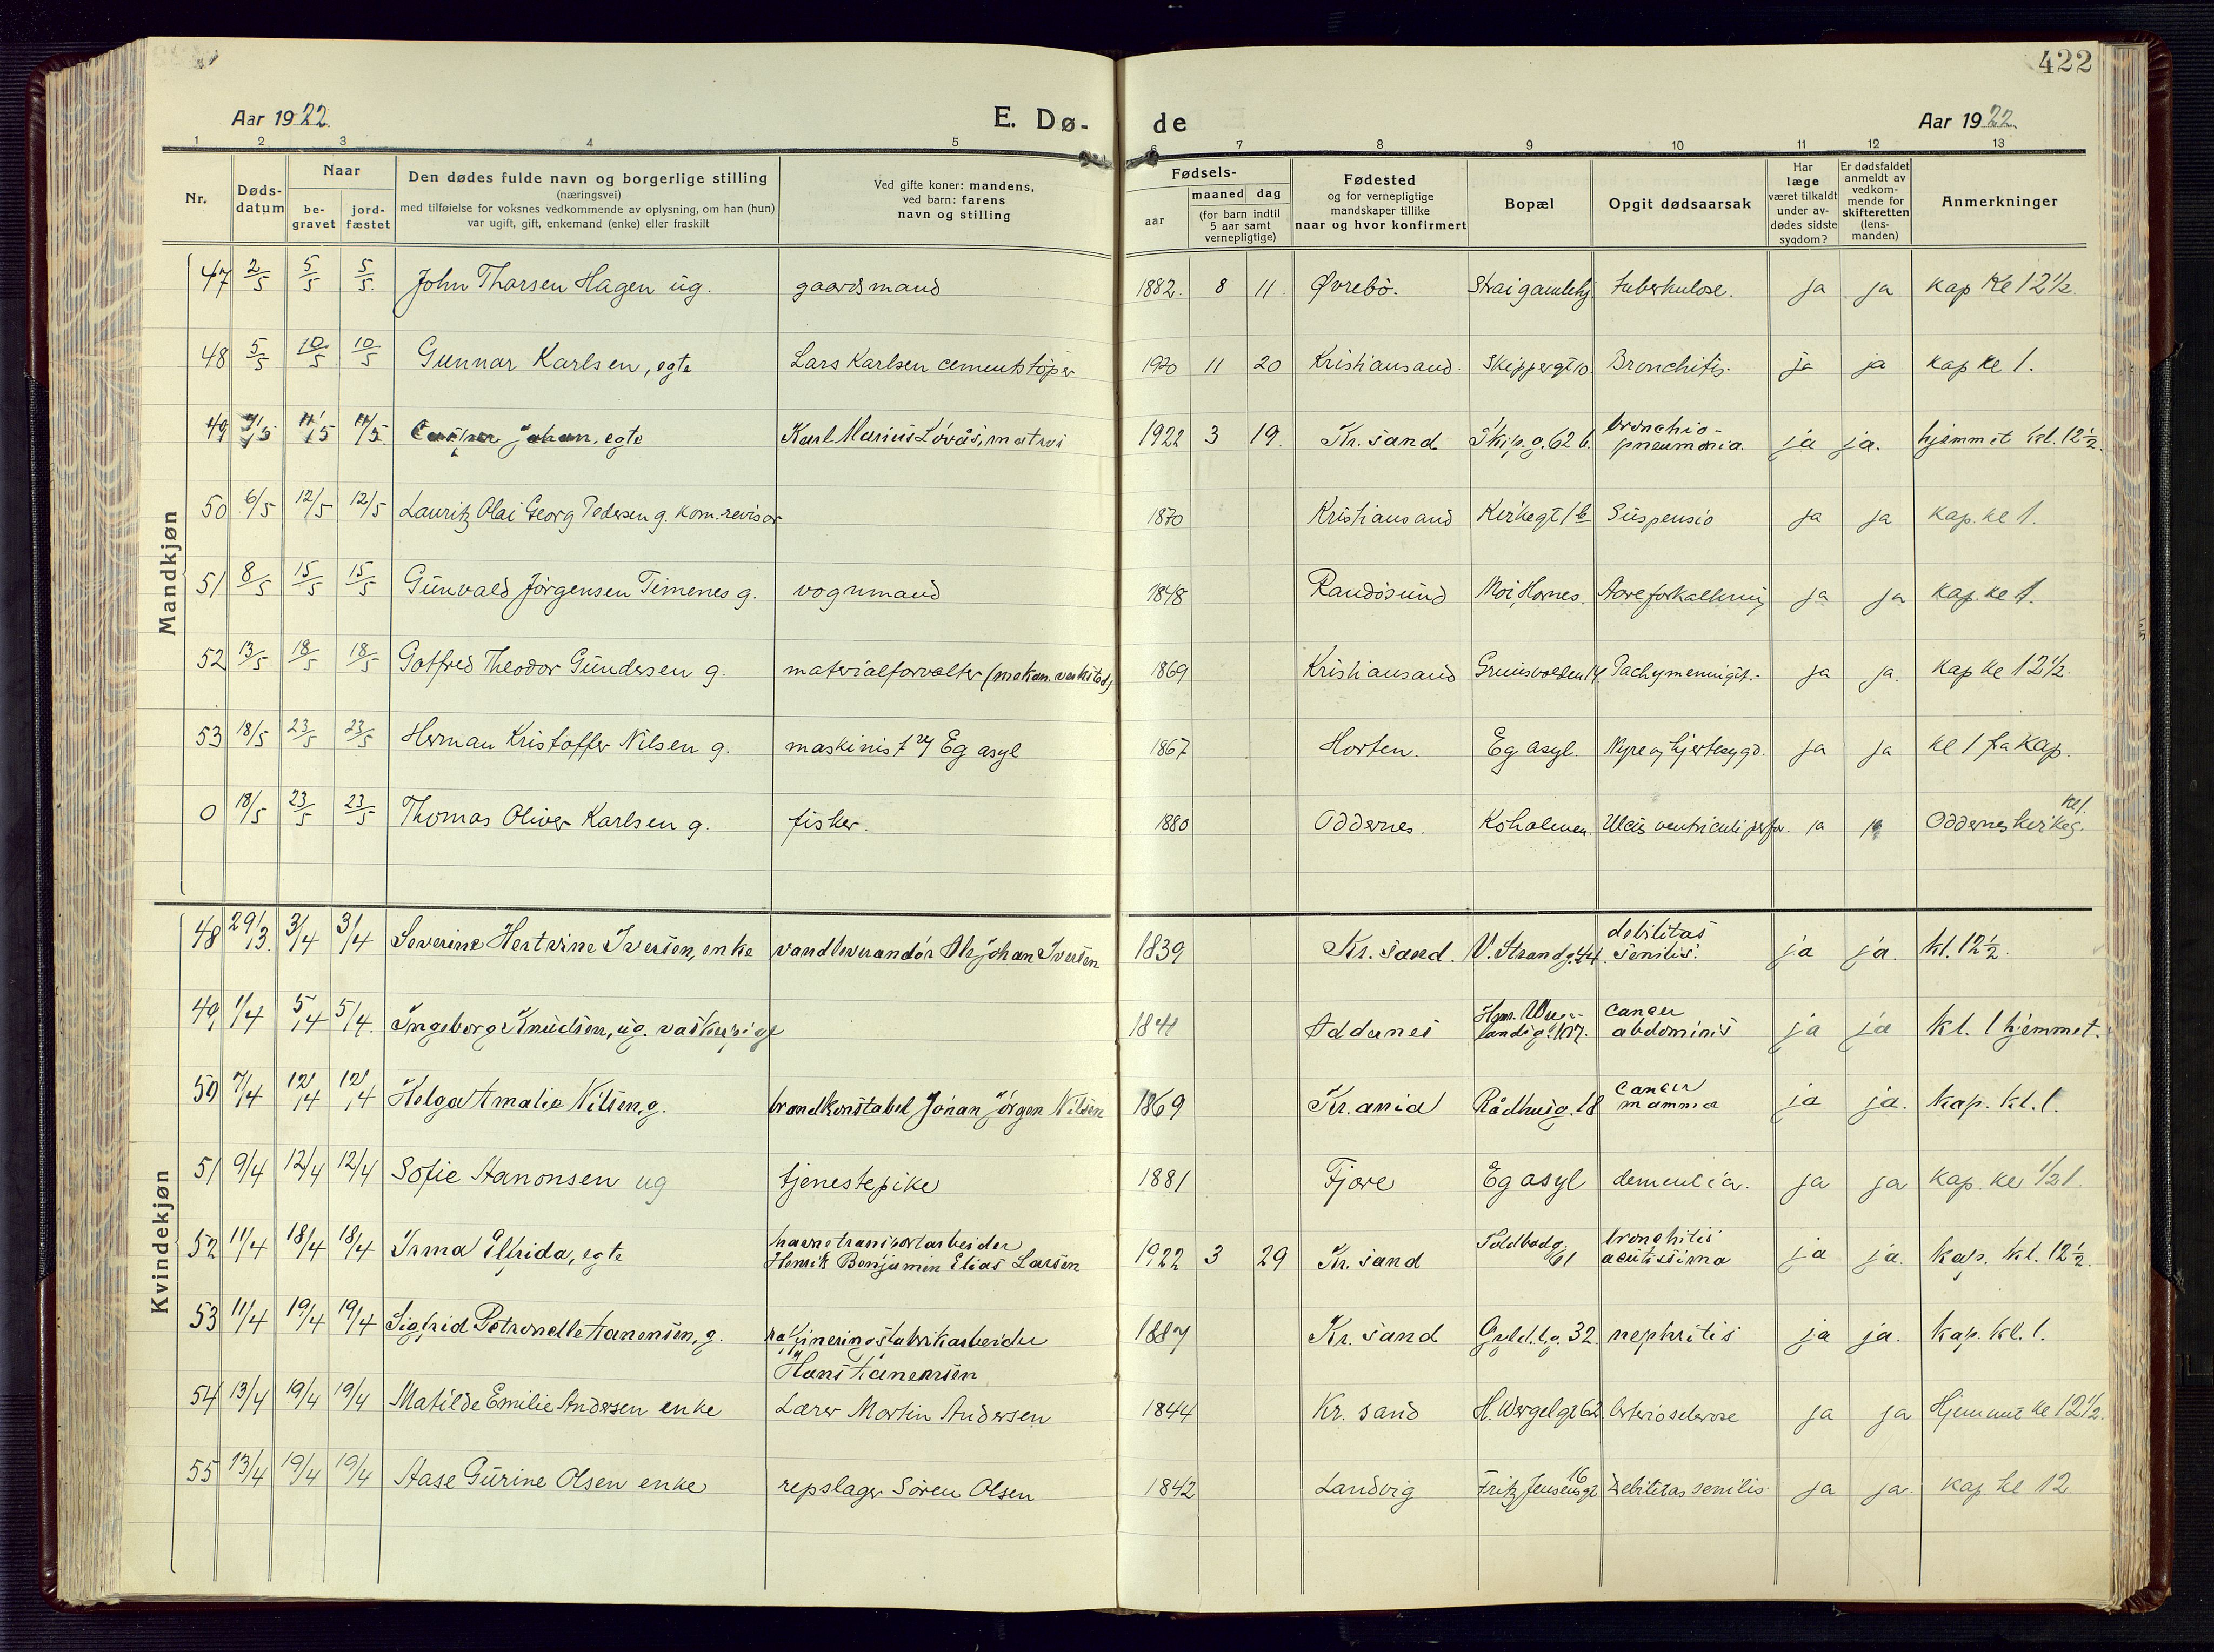 422
Aar 1922.
E. Dø-
de
Aar 1922
1 2 3 4 5 6 7 8 9 10 11 12 13
Nr.
Døds-
datum
Naar
be-
gravet
jord-
fæstet
Den dødes fulde navn og borgerlige stilling
(næringsvei)
med tilføielse for voksnes vedkommende av oplysning, om han (hun)
var ugift, gift, enkemand (enke) eller fraskilt
Ved gifte koner: mandens,
ved barn: farens
navn og stilling
Fødsels-
aar
maaned dag
(for barn indtil
5 aar samt
vernepligtige)
Fødested
og for vernepligtige
mandskaper tillike
naar og hvor konfirmert
Bopæl
Opgit dødsaarsak
Har
læge
været tilkaldt
under av-
dødes sidste
sygdom?
Er dødsfaldet
anmeldt av
vedkom-
mende for
skifteretten
(lens-
manden)
Anmerkninger
Mandkjøn
47 2/5 5/5 5/5. John Tharsen Hagen ug. gaardsmand 1882. 8 11. Øvrebö. Strai gamlehj. tuberkulose. ja ja kap kl 12 1/2.
48 5/5 10/5 10/5 Gunnar Karlsen, egte Lars Karlsen cementstöper 1920 11 20 Kristiansand. Skippergt 10. Bronchitis. ja ja kap kl 1.
49 11/5 11/5 Johan, egte Karl Marius Lövås, matros 1922 3 19. Kr. sand Skip.g. 62 b. broncho-
pneumonia. ja ja. hjemmet kl. 12 1/2.
50 6/5 12/5 12/5 Lauritz Olai Georg Pedersen g. kom.revisor 1870 Kristiansand Kirkegt 1 b Suspensio ja ja kap. kl 1.
51 8/5 15/5 15/5 Gunvald Jörgensen Timenes g. vognmand 1848 Randösund Moi, Hornes. Aareforkalkning ja ja kap. kl 1.
52 13/5 18/5 18/5 Gotfred Theodor Gundersen g. materialforvalter (mekan. verksted) 1869 Kristiansand Grimsvolden 14 Pachymeningit. ja ja. kap kl 12 1/2.
53 18/5 23/5 23/5 Herman Kristoffer Nilsen g. maskinist v/ Eg asyl 1867 Horten. Eg asyl. Nyre og hjertesygd. ja ja kl 1 fra kap.
0 18/5 23/5 23/5 Thomas Oliver Karlsen g. fisker. 1880 Oddernes. Koholmen. Ulcus ventriculi perfor. ja ja Oddernes kirkeg. kl 1.
Kvindekjøn
48 29/3. 3/4 3/4 Severine Hertvine Iversen, enke vandleverandör Ole Johan Iversen 1839 Kr. sand. V. Strandg. 44. debilitas
senilis. ja ja. kl. 12 1/2.
49 1/4 5/4 5/4. Ingeborg Knudsen, ug. vaskepige 1841 Oddernes Hen. Werge-
landsg. 107. cancer
abdominis ja ja kl. 1 hjemmet.
50 7/4 12/4 12/4 Helga Amalie Nilsen, g. brandkonstabel Johan Jörgen Nilsen 1869 Kr.ania Rådhusg. 18 cancer
mamma ja ja. kap. kl. 1.
51 9/4 12/4 12/4 Sofie Aanonsen ug tjenestepike 1881 Fjære Eg asyl dementia. ja ja kap. kl 1/2 1.
52 11/4 18/4 18/4 Irma Elfrida, egte havnetransportarbeider
Henrik Benjamin Elias Larsen 1922 3 29 Kr. sand Toldbodg.
61 bronchitis
acutissima ja ja. kap. kl. 12 1/2.
53 11/4 19/4 19/4 Sigfrid Petronelle Aanensen, g. raffineringsfabrikarbeider
Hans Aanensen 1887 Kr. sand Gyld.l.g. 32. nephritis ja ja. kap. kl. 1.
54 13/4 19/4 19/4 Matilde Emilie Andersen enke Lærer Martin Andersen 1844 Kr. sand H. Wergelgt 62 Arteriosclerose ja ja Hjemme kl 12 1/2.
55 13/4 19/4 19/4 Aase Gurine Olsen enke repslager Sören Olsen 1842 Landvig Fritz Jensensgt 16 Debilitas senilis. ja ja. kap kl 12